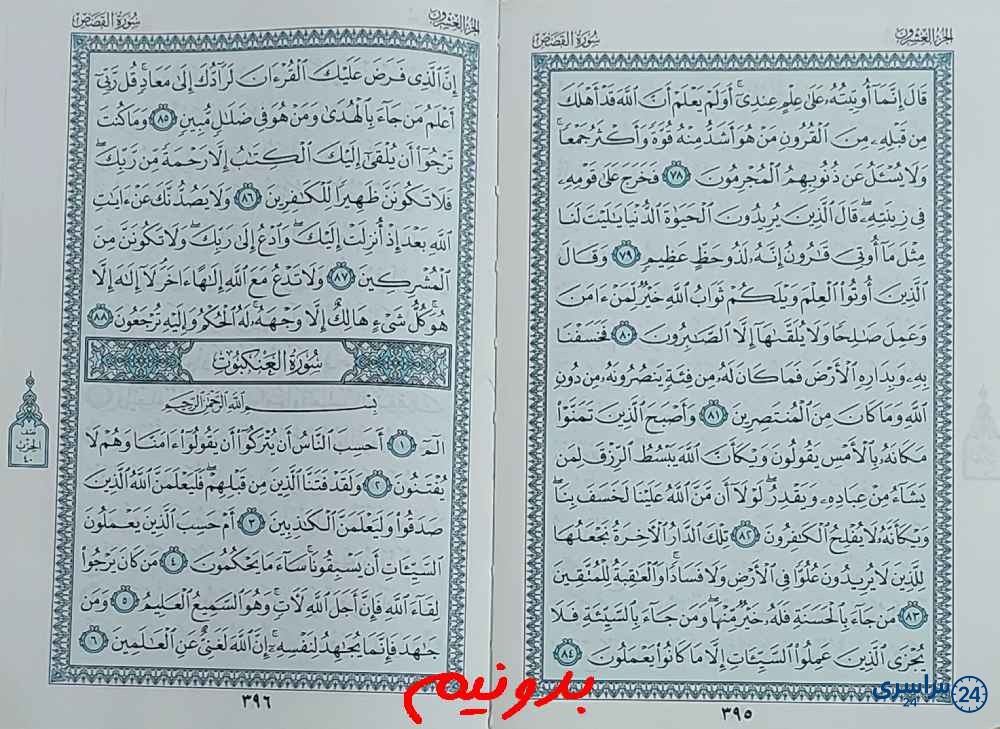 الجزء العشرون
سورة القصص
قَالَ إِنَّمَآ أُوتِيتُهُۥ عَلَىٰ عِلْمٍ عِندِىٓۚ أَوَلَمْ يَعْلَمْ أَنَّ ٱللَّهَ قَدْ أَهْلَكَ
مِن قَبْلِهِۦ مِنَ ٱلْقُرُونِ مَنْ هُوَ أَشَدُّ مِنْهُ قُوَّةً وَأَكْثَرُ جَمْعًاۚ
وَلَا يُسْـَٔلُ عَن ذُنُوبِهِمُ ٱلْمُجْرِمُونَ ٧٨ فَخَرَجَ عَلَىٰ قَوْمِهِۦ
فِى زِينَتِهِۦۖ قَالَ ٱلَّذِينَ يُرِيدُونَ ٱلْحَيَوٰةَ ٱلدُّنْيَا يَـٰلَيْتَ لَنَا
مِثْلَ مَآ أُوتِىَ قَـٰرُونُ إِنَّهُۥ لَذُو حَظٍّ عَظِيمٍ ٧٩ وَقَالَ
ٱلَّذِينَ أُوتُوا۟ ٱلْعِلْمَ وَيْلَكُمْ ثَوَابُ ٱللَّهِ خَيْرٌ لِّمَنْ ءَامَنَ
وَعَمِلَ صَـٰلِحًا وَلَا يُلَقَّىٰهَآ إِلَّا ٱلصَّـٰبِرُونَ ٨٠ فَخَسَفْنَا
بِهِۦ وَبِدَارِهِ ٱلْأَرْضَ فَمَا كَانَ لَهُۥ مِن فِئَةٍ يَنصُرُونَهُۥ مِن دُونِ
ٱللَّهِ وَمَا كَانَ مِنَ ٱلْمُنتَصِرِينَ ٨١ وَأَصْبَحَ ٱلَّذِينَ تَمَنَّوْا۟
مَكَانَهُۥ بِٱلْأَمْسِ يَقُولُونَ وَيْكَأَنَّ ٱللَّهَ يَبْسُطُ ٱلرِّزْقَ لِمَن
يَشَآءُ مِنْ عِبَادِهِۦ وَيَقْدِرُۖ لَوْلَآ أَن مَّنَّ ٱللَّهُ عَلَيْنَا لَخَسَفَ بِنَاۖ
وَيْكَأَنَّهُۥ لَا يُفْلِحُ ٱلْكَـٰفِرُونَ ٨٢ تِلْكَ ٱلدَّارُ ٱلْـَٔاخِرَةُ نَجْعَلُهَا
لِلَّذِينَ لَا يُرِيدُونَ عُلُوًّا فِى ٱلْأَرْضِ وَلَا فَسَادًاۚ وَٱلْعَـٰقِبَةُ لِلْمُتَّقِينَ
٨٣ مَن جَآءَ بِٱلْحَسَنَةِ فَلَهُۥ خَيْرٌ مِّنْهَاۖ وَمَن جَآءَ بِٱلسَّيِّئَةِ فَلَا
يُجْزَى ٱلَّذِينَ عَمِلُوا۟ ٱلسَّيِّـَٔاتِ إِلَّا مَا كَانُوا۟ يَعْمَلُونَ ٨٤
٣٩٥
الجزء العشرون
سورة القصص
إِنَّ ٱلَّذِى فَرَضَ عَلَيْكَ ٱلْقُرْءَانَ لَرَآدُّكَ إِلَىٰ مَعَادٍۚ قُل رَّبِّىٓ
أَعْلَمُ مَن جَآءَ بِٱلْهُدَىٰ وَمَنْ هُوَ فِى ضَلَـٰلٍ مُّبِينٍ ٨٥ وَمَا كُنتَ
تَرْجُوٓا۟ أَن يُلْقَىٰٓ إِلَيْكَ ٱلْكِتَـٰبُ إِلَّا رَحْمَةً مِّن رَّبِّكَۖ
فَلَا تَكُونَنَّ ظَهِيرًا لِّلْكَـٰفِرِينَ ٨٦ وَلَا يَصُدُّنَّكَ عَنْ ءَايَـٰتِ
ٱللَّهِ بَعْدَ إِذْ أُنزِلَتْ إِلَيْكَۖ وَٱدْعُ إِلَىٰ رَبِّكَۖ وَلَا تَكُونَنَّ مِنَ
ٱلْمُشْرِكِينَ ٨٧ وَلَا تَدْعُ مَعَ ٱللَّهِ إِلَـٰهًا ءَاخَرَۘ لَآ إِلَـٰهَ إِلَّا
هُوَۚ كُلُّ شَىْءٍ هَالِكٌ إِلَّا وَجْهَهُۥۚ لَهُ ٱلْحُكْمُ وَإِلَيْهِ تُرْجَعُونَ ٨٨
سورة العنكبوت
بِسْمِ ٱللَّهِ ٱلرَّحْمَـٰنِ ٱلرَّحِيمِ
الٓمٓ ١ أَحَسِبَ ٱلنَّاسُ أَن يُتْرَكُوٓا۟ أَن يَقُولُوٓا۟ ءَامَنَّا وَهُمْ لَا
يُفْتَنُونَ ٢ وَلَقَدْ فَتَنَّا ٱلَّذِينَ مِن قَبْلِهِمْۖ فَلَيَعْلَمَنَّ ٱللَّهُ ٱلَّذِينَ
صَدَقُوا۟ وَلَيَعْلَمَنَّ ٱلْكَـٰذِبِينَ ٣ أَمْ حَسِبَ ٱلَّذِينَ يَعْمَلُونَ
ٱلسَّيِّـَٔاتِ أَن يَسْبِقُونَاۚ سَآءَ مَا يَحْكُمُونَ ٤ مَن كَانَ يَرْجُوا۟
لِقَآءَ ٱللَّهِ فَإِنَّ أَجَلَ ٱللَّهِ لَـَٔاتٍۚ وَهُوَ ٱلسَّمِيعُ ٱلْعَلِيمُ ٥ وَمَن
جَـٰهَدَ فَإِنَّمَا يُجَـٰهِدُ لِنَفْسِهِۦٓۚ إِنَّ ٱللَّهَ لَغَنِىٌّ عَنِ ٱلْعَـٰلَمِينَ ٦
نصف
الحزب
٣٩٦
بدونیم
سراسری
24
24